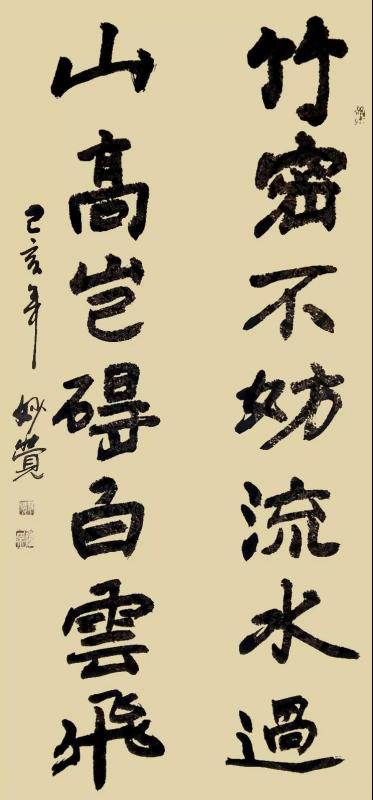 竹密不妨流水過
山高岂碍白雲飛
己亥年 妙覺